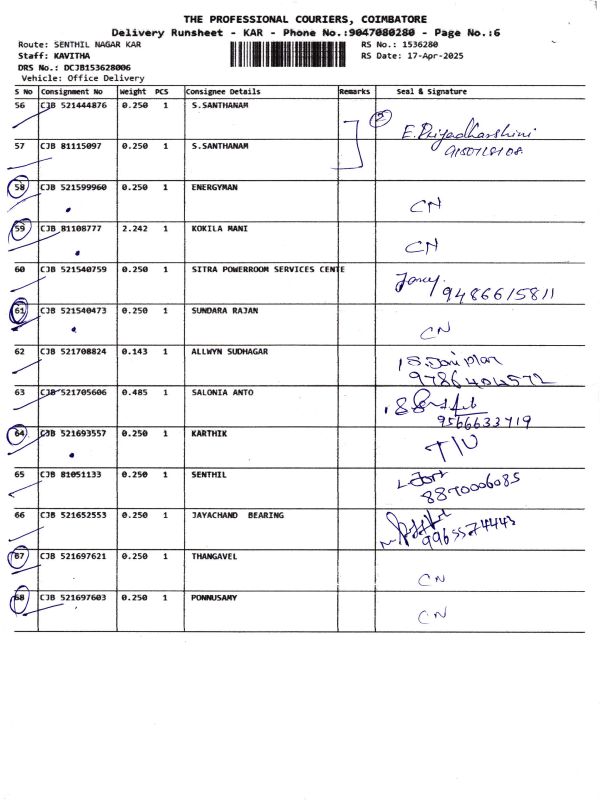 THE PROFESSIONAL COURIERS, COIMBATORE
Delivery Runsheet - KAR - Phone No.:9047080280 - Page No.:6
Route: SENTHIL NAGAR KAR RS No.: 1536280
Staff: KAVITHA RS Date: 17-Apr-2025
DRS No.: DCJB153628006
Vehicle: Office Delivery
S No Consignment No Weight PCS Consignee Details Remarks Seal & Signature
56 CJB 521444876 0.250 1 S.SANTHANAM 2 E. Priyadharshini
57 CJB 81115097 0.250 1 S.SANTHANAM
58 CJB 521599960 0.250 1 ENERGYMAN CN
59 CJB 81108777 2.242 1 KOKILA MANI CN
60 CJB 521540759 0.250 1 SITRA POWERROOM SERVICES CENTE 9486615811
61 CJB 521540473 0.250 1 SUNDARA RAJAN CN
62 CJB 521708824 0.143 1 ALLWYN SUDHAGAR
9786404572
63 CJB 521705606 0.485 1 SALONIA ANTO
9566633719
64 CJB 521693557 0.250 1 KARTHIK
65 CJB 81051133 0.250 1 SENTHIL
8870006085
66 CJB 521652553 0.250 1 JAYACHAND BEARING
67 CJB 521697621 0.250 1 THANGAVEL CN
68 CJB 521697603 0.250 1 PONNUSAMY CN